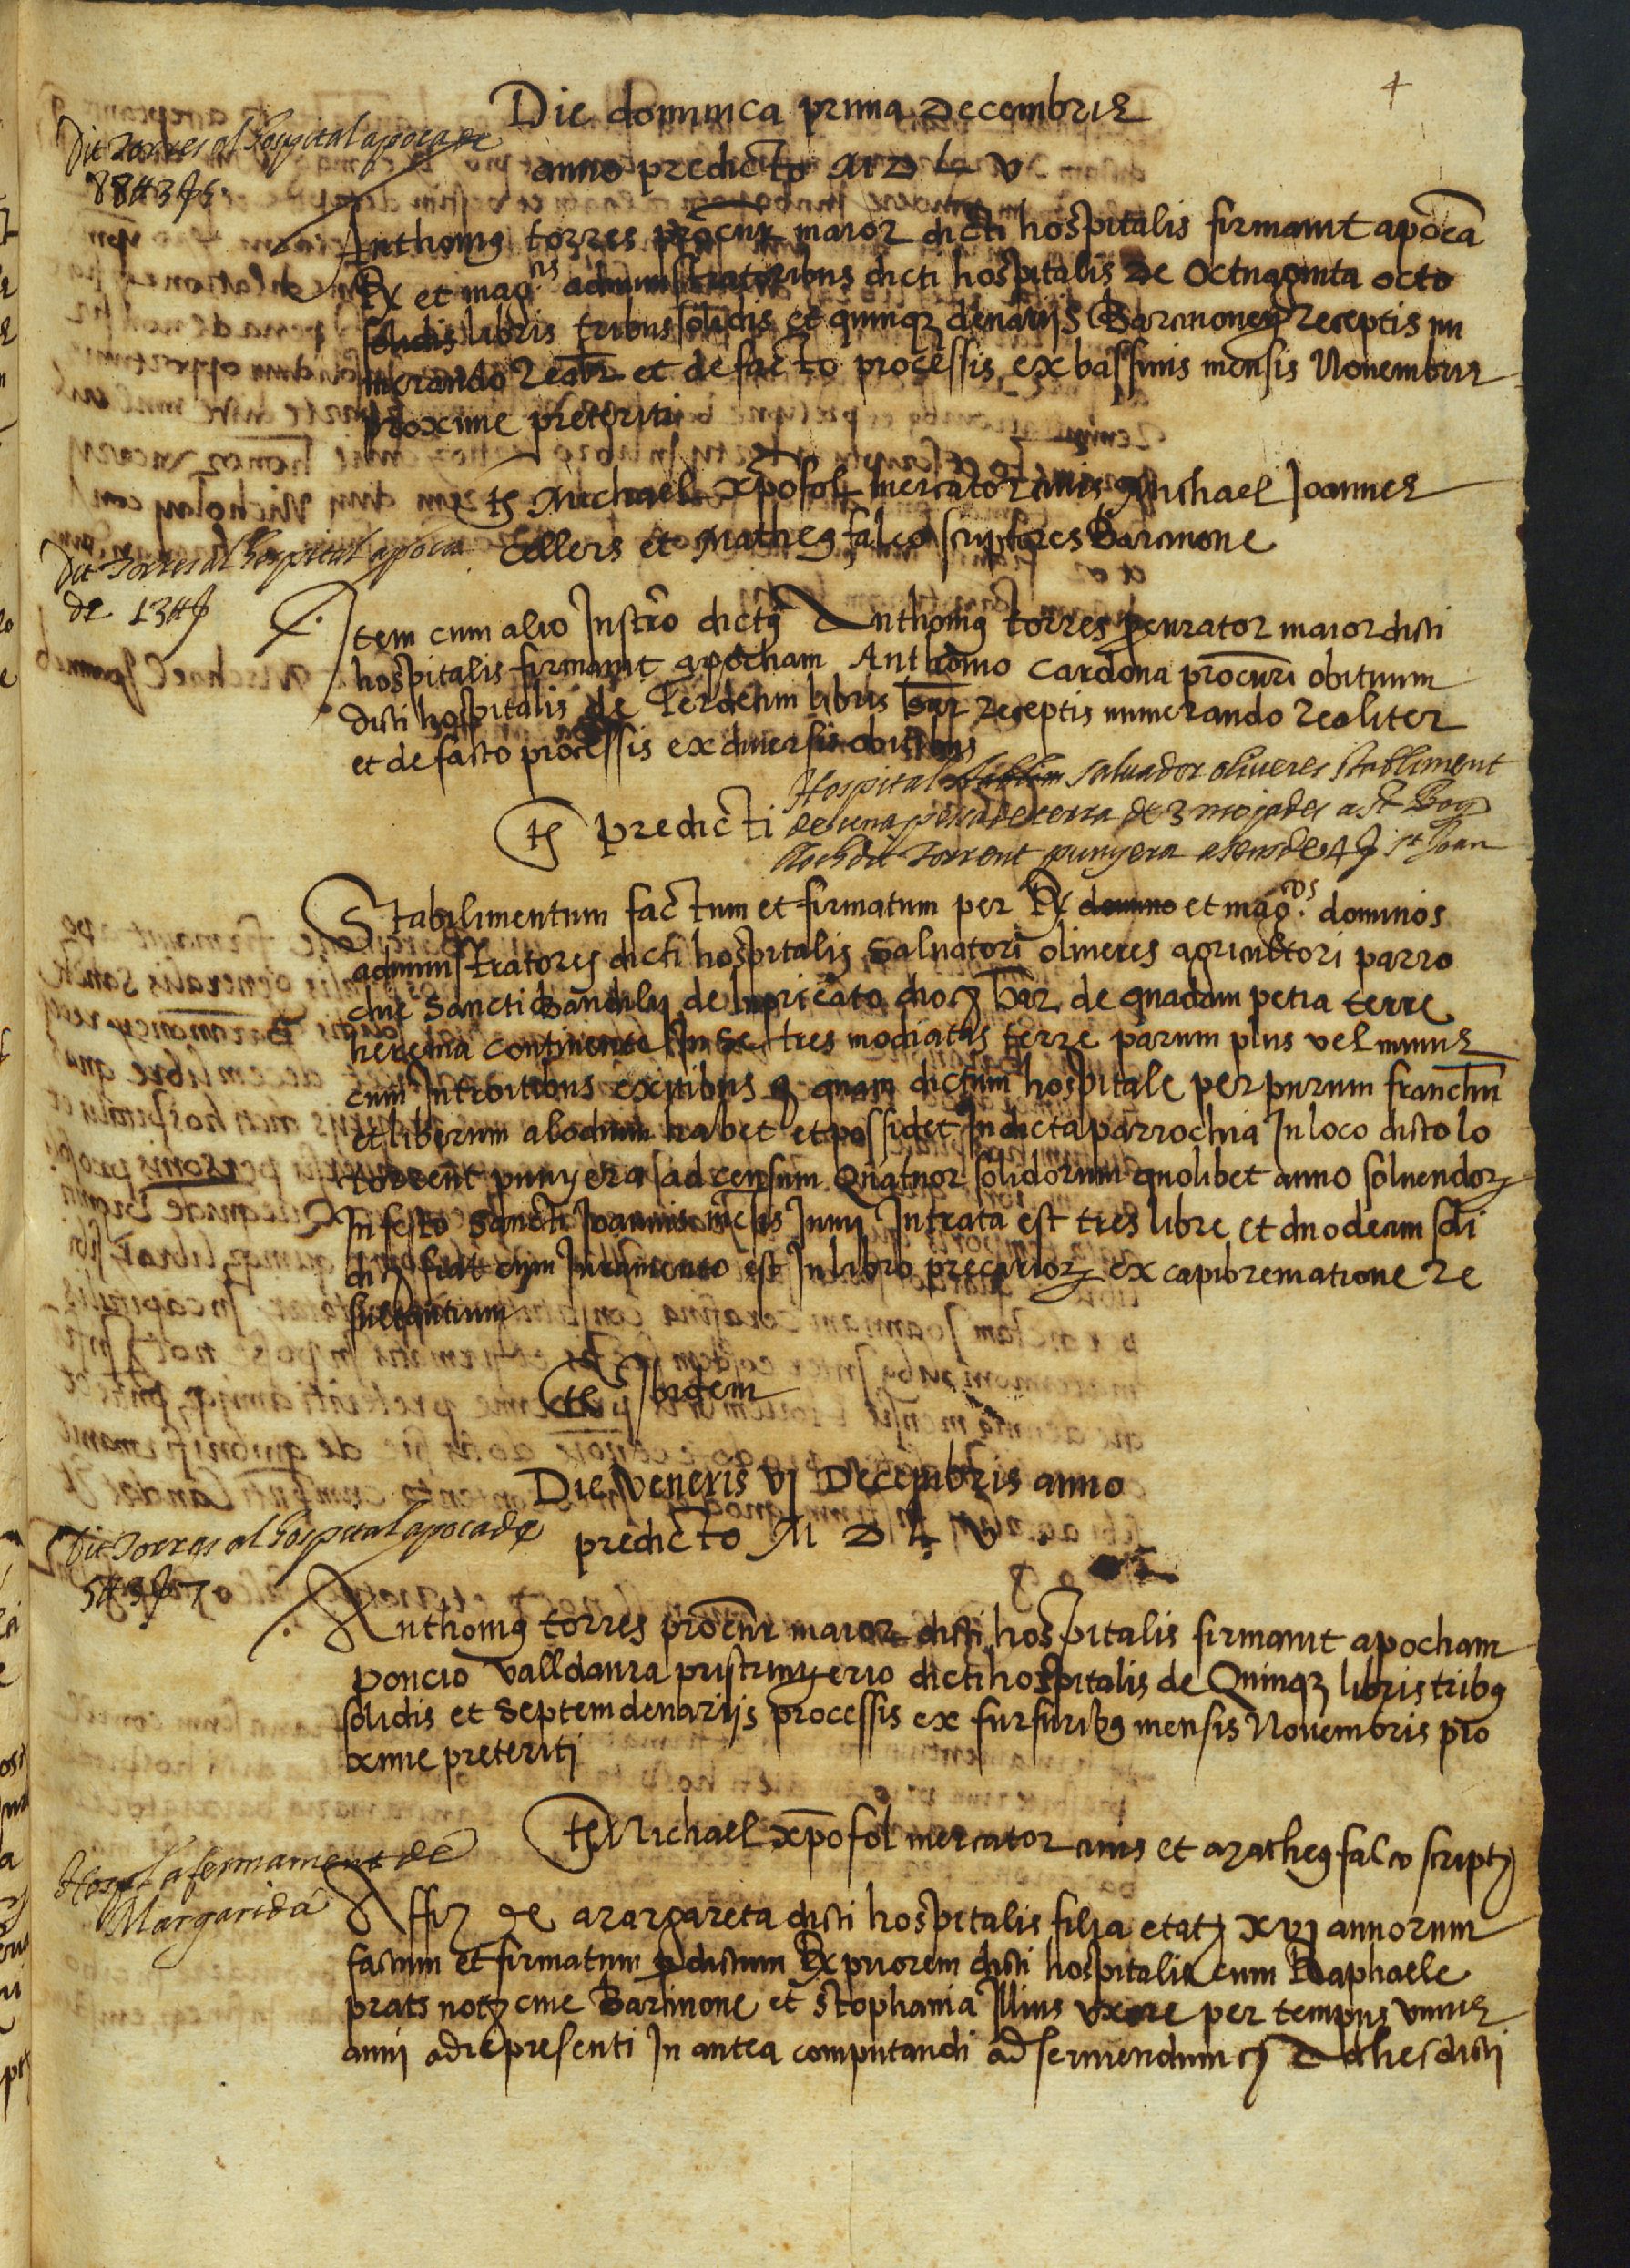 4
Die dominica prima Decembris
anno predicto M D L V
Dit Torres al hospital apoca de
88 ₶ 3 ß 5
Anthonius torres procur maior dicti hospitalis firmavit apocã
Rx et mag.cis administratoribus dicti hospitalis de Octuaginta octo
solidis libris tribus solidis et quinqz denarijs Barcinonen receptis nu
merando realr et de facto processis ex bassinis mensis Novembris
proxime preteriti
ts Michael xp̃ofol mercator civis Michael Joannes
Cellers et Matheus falco scriptores Barcinone
Dit Torres al hospital apoca
de 13 ₶
Item cum alio Instrõ dictus Anthonius torres procurator maior dicti
hospitalis firmavit apocham Anthonio Cardona procuri obituum
dicti hospitalis de Terdecim libris bar receptis numerando realiter
et de facto processis ex diversis obitibus
ts predicti
Hospital stablim Salvador oliveres stabliment
de una pesa de terra de 3 mojades a St Boy
lloch dit Torrent punyera a sens de 4 ß St Joan
Stabilimentum factum et firmatum per Rx domino et mag.cos dominos
administratores dicti hospitalis Salvatori oliveres agricultori parro
chie Sancti Baudilij de lupricato dioc bar de quadam petia terre
herema continente In se tres modiatas terre parum plus vel minus
cum Introitibus exitibus q quam dictum hospitale per purum franchũ
et liberum alodium habet et possidet In dicta parrochia In loco dicto lo
torrent punyera ad censum Quatuor solidorum quolibet anno solvendorz
In festo Sancti Joannis mẽsis Junij Intrata est tres libre et duodecim soli
di fiat cum Juramento est In libro precariorz ex capibrematione re
sultantium
ts Ibidem
Die Veneris vj Decembris anno
predicto M D L V
Dit Torres al hospital apoca de
5 ₶ 3 ß 7
Anthonius torres procur maior dicti hospitalis firmavit apocham
Poncio Valldaura pristinyerio dicti hospitalis de Quinqz libris tribus
solidis et Septem denarijs processis ex furfuribus mensis Novembris pro
xime preteriti
ts Michael xp̃ofol mercator civis et Matheus falco script
Hospital afermament de
Margarida
Affirmt de Margareta dicti hospitalis filia etatis xvj annorum
factum et firmatum p dictum Rx priorem dicti hospitalis cum Raphaele
prats not cive Barcinone et Stephania Illius uxore per tempus unius
anni a die presenti In antea computandi ad serviendum Ad hec dicti